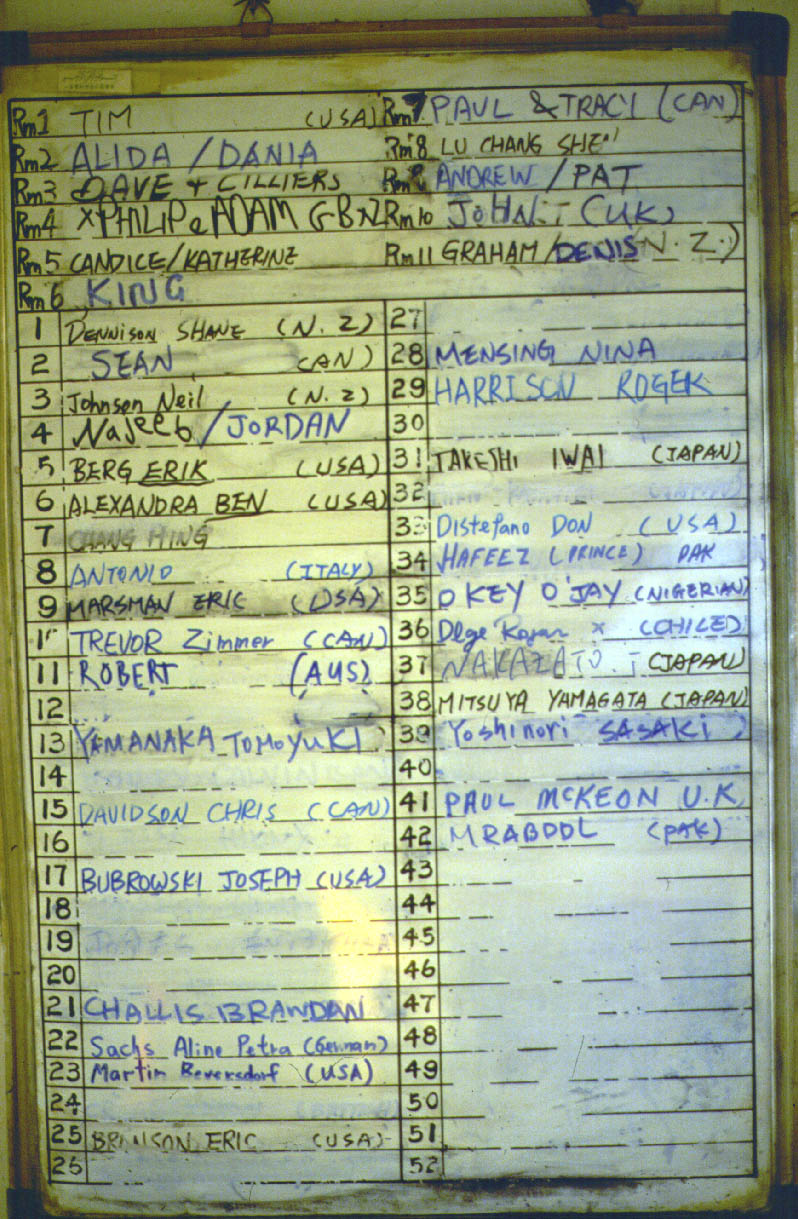 Rm1 TIM (USA)
Rm2 ALIDA / DANIA
Rm3 DAVE + CILLIERS
Rm4 X PHILIP & ADAM GB NZ
Rm5 CANDICE/KATHERINE
Rm6 KING
Rm7 PAUL & TRACY (CAN)
Rm8 LU CHANG SHE
Rm ANDREW / PAT
Rm10 JOHN (UK)
Rm11 GRAHAM/DENIS N.Z.)
1 DENNISON SHANE (N.Z)
2 SEAN CAN)
3 Johnson Neil (N.Z)
4 Najeeb / JORDAN
5 BERG ERIK (USA)
6 ALEXANDRA BEN (USA)
7 CHANG HING
8 ANTONIO (ITALY)
9 MARSMAN ERIC (USA)
1 TREVOR Zimmer (CAN)
11 ROBERT (AUS)
12
13 YAMANAKA TOMOYUKI
14
15 DAVIDSON CHRIS (CAN)
16
17 BUBROWSKI JOSEPH (USA)
18
19
20
21 CHALLIS BRANDAN
22 Sachs Aline Petra (German)
23 Martin Beversdorf (USA)
24
25 BRANSON ERIC (USA)
26
27
28 MENSING NINA
29 HARRISON ROGER
30
31 TAKESHI IWAI (JAPAN)
32
33 Distefano DON (USA)
34 HAFEEZ (PRINCE) PAK
35 OKEY O'JAY (NIGERIAN)
36 X (CHILE)
37 NAKAZATO (JAPAN)
38 MITSUYA YAMAGATA (JAPAN)
39 Yoshinori SASAKI )
40
41 PAUL McKEON U.K
42 MRABDOL (PAK)
43
44
45
46
47
48
49
50
51
52